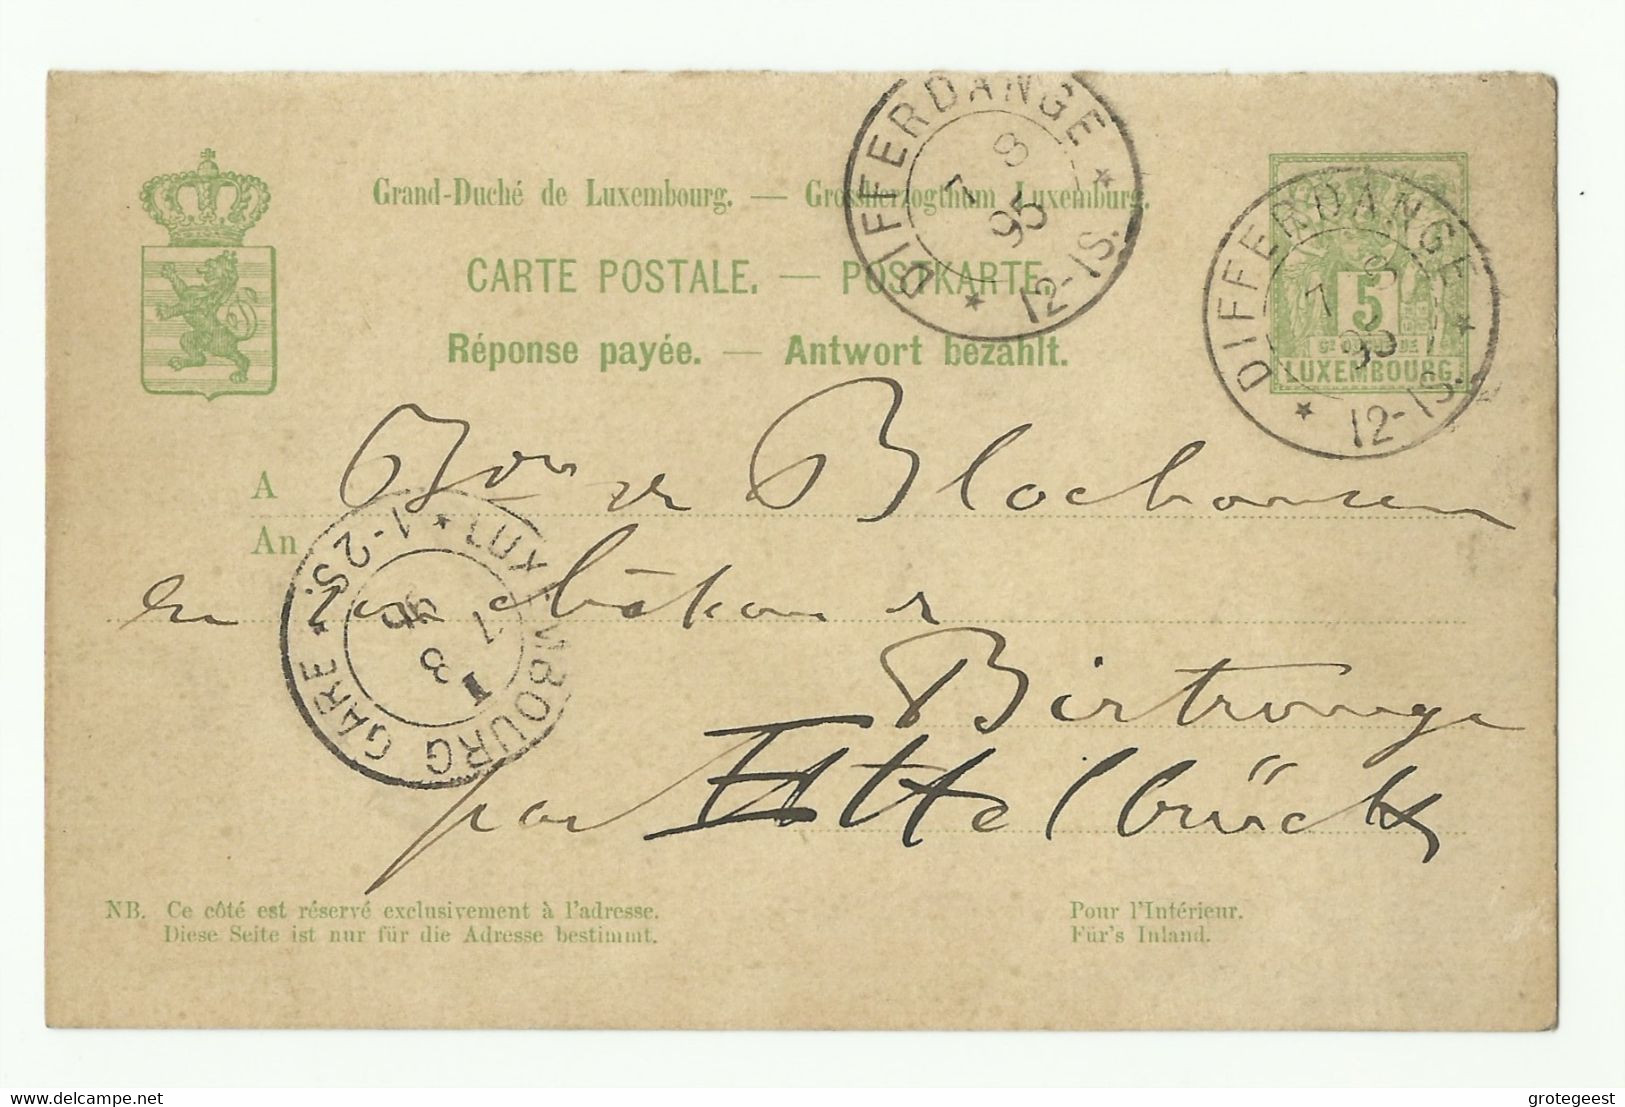 Grand-Duché de Luxembourg. — Grossherzogthum Luxemburg.
CARTE POSTALE. — POSTKARTE.
Réponse payée. — Antwort bezahlt.
DIFFERDANGE
7 8
95
12-1S.
DIFFERDANGE
7 8
95
12-1S.
5
Gd DUCHÉ DE
LUXEMBOURG
A
An
Bon de Blochausen
en son château de
Birtrange
par Ettelbrück
LUXEMBOURG GARE
1-2S.
7
8
95
NB. Ce côté est réservé exclusivement à l'adresse.
Diese Seite ist nur für die Adresse bestimmt.
Pour l'Intérieur.
Für's Inland.
www.delcampe.net
grotegeest